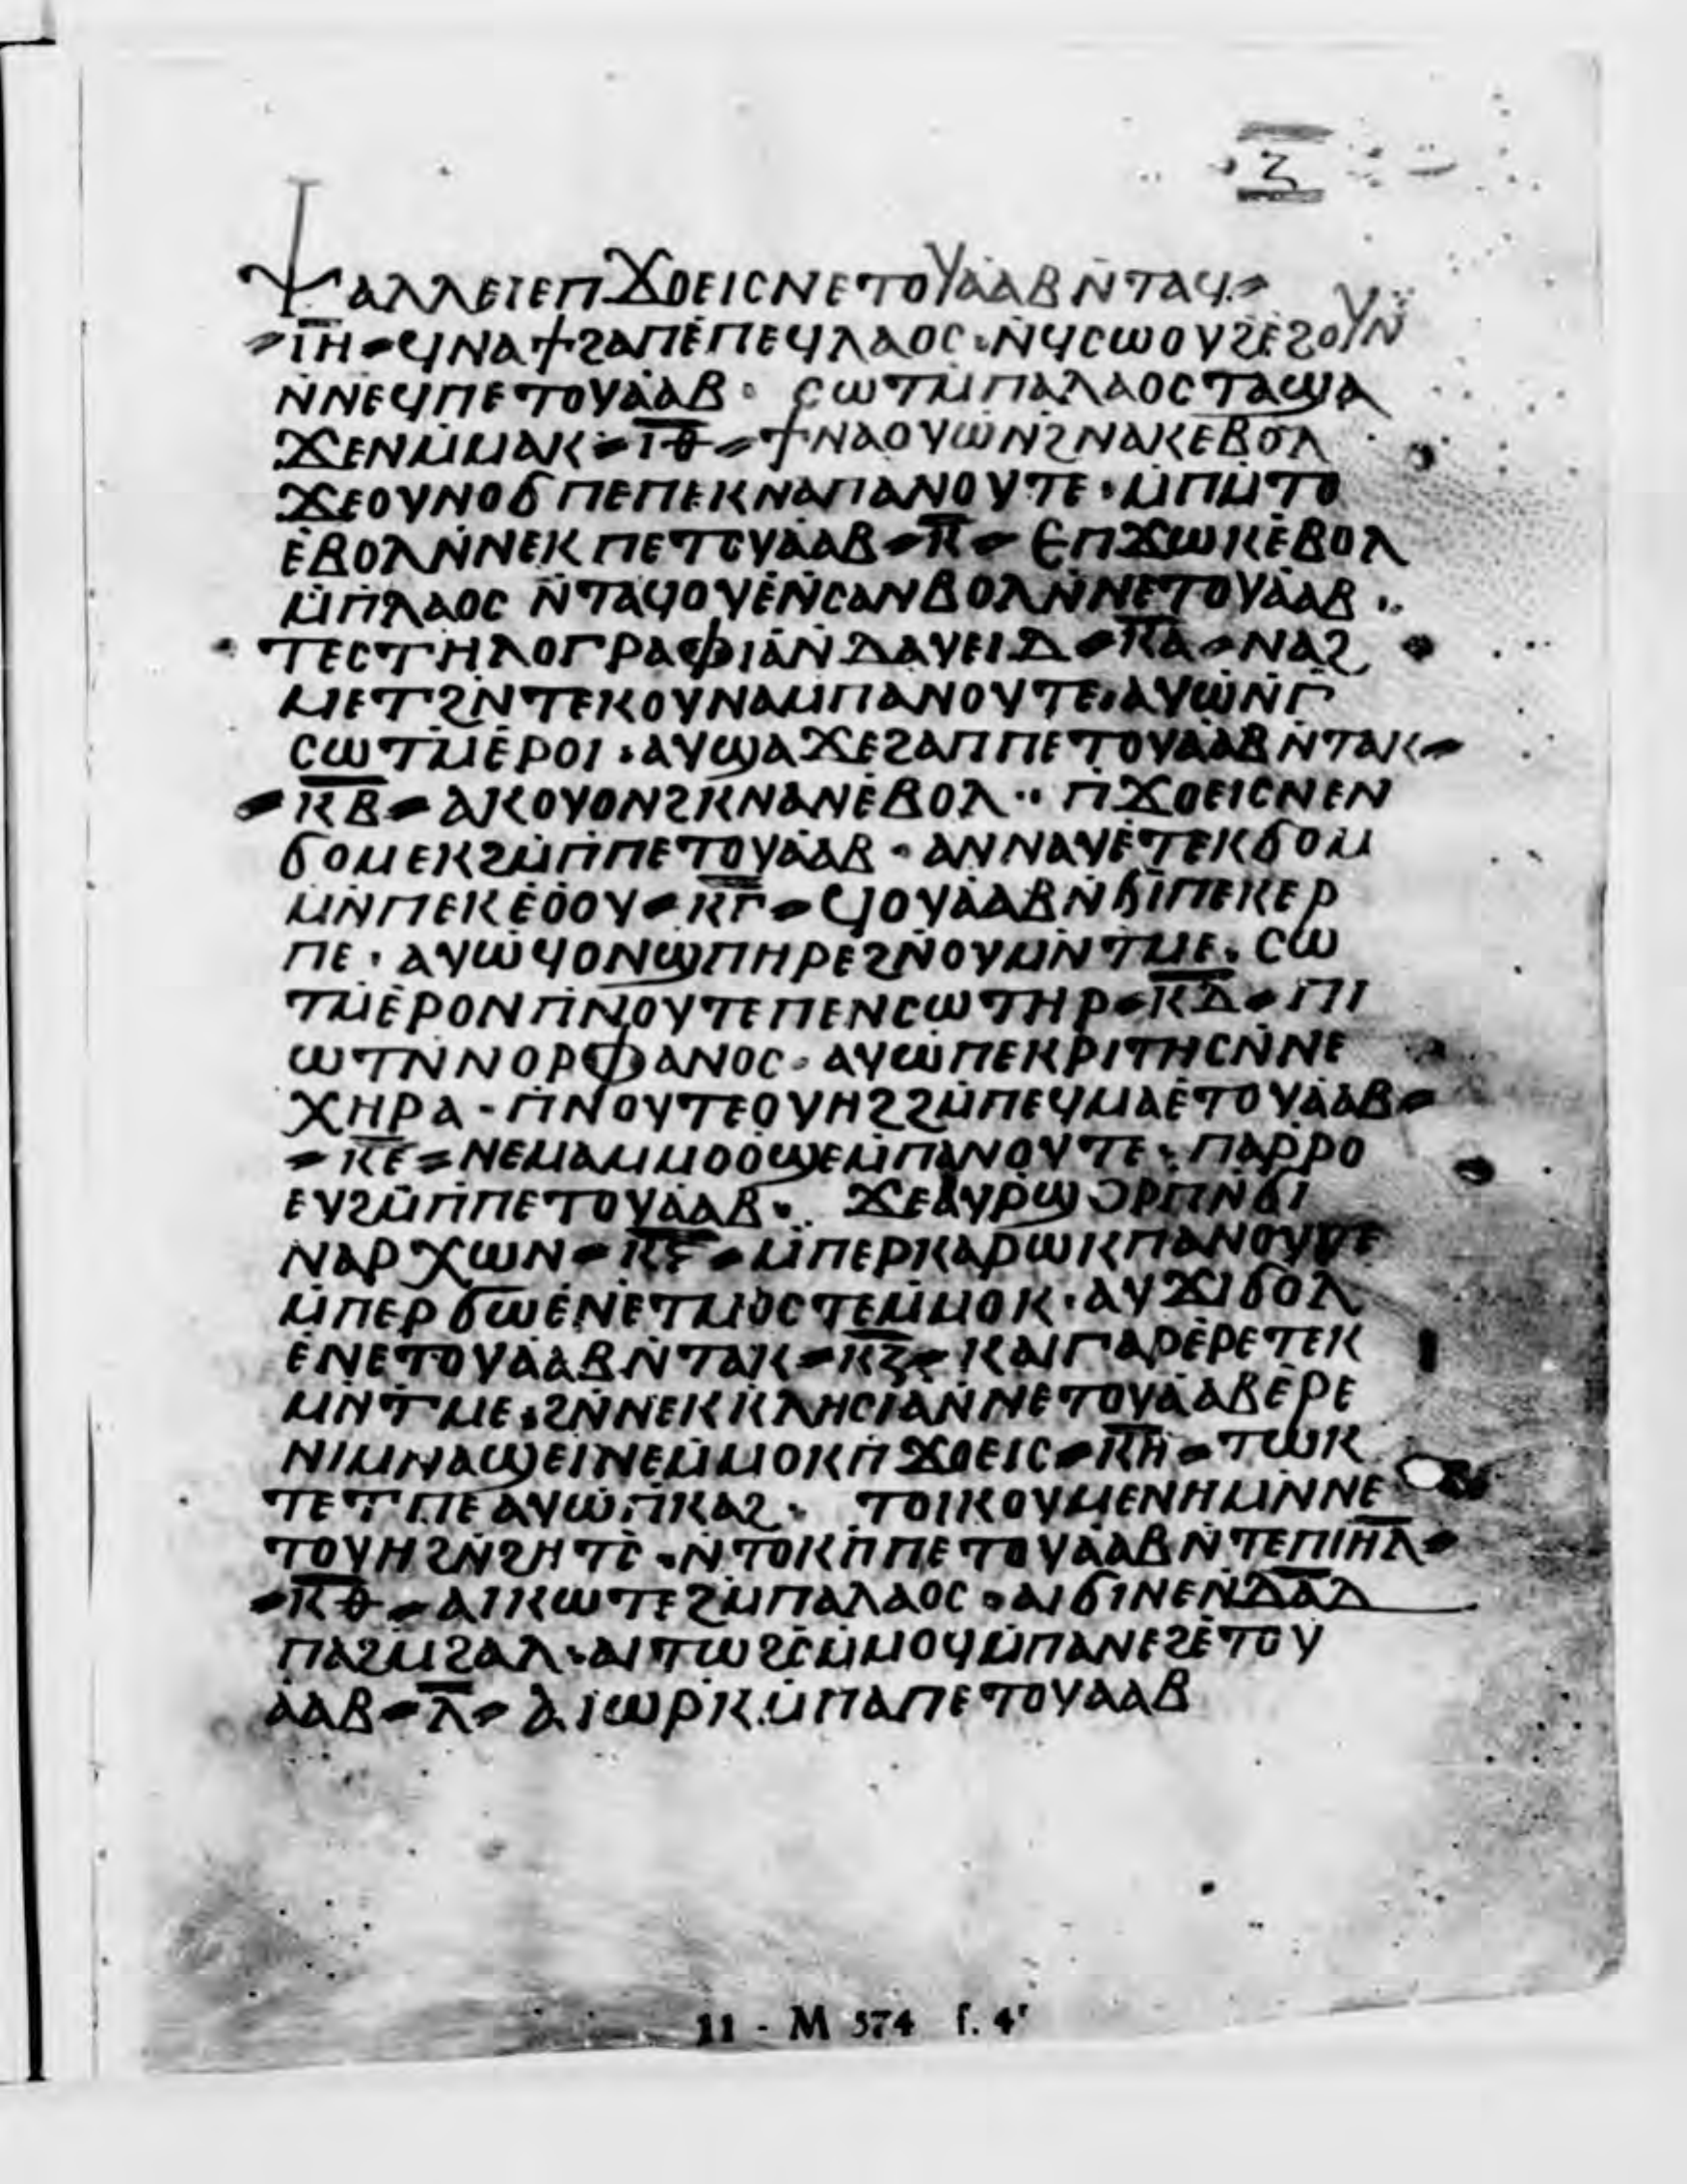 ⲍ
ⲯⲁⲗⲗⲉⲓⲉⲡϫⲟⲉⲓⲥⲛⲉⲧⲟⲩⲁⲁⲃⲛ̇ⲧⲁϥ⸗
⸗ⲓ̅ⲏ̅⸗ϥⲛⲁϯϩⲁⲡⲉ̇ⲡⲉϥⲗⲁⲟⲥ·ⲛ̇ϥⲥⲱⲟⲩϩⲉ̇ϩⲟⲩⲛ
ⲛ̇ⲛⲉϥⲡⲉⲧⲟⲩⲁⲁⲃ· ⲥⲱⲧⲙ̇ⲡⲁⲗⲁⲟⲥⲧⲁϣⲁ
ϫⲉⲛⲙ̇ⲙⲁⲕ⸗ⲓ̅ⲑ̅⸗ϯⲛⲁⲟⲩⲱⲛϩⲛⲁⲕⲉⲃⲟⲗ
ϫⲉⲟⲩⲛⲟϭⲡⲉⲡⲉⲕⲛⲁⲡⲁⲛⲟⲩⲧⲉ·ⲙ̇ⲡⲙ̇ⲧⲟ
ⲉ̇ⲃⲟⲗⲛ̇ⲛⲉⲕⲡⲉⲧⲟⲩⲁⲁⲃ⸗ⲕ̅⸗ⲉⲡϫⲱⲕⲉ̇ⲃⲟⲗ
ⲙ̇ⲡⲗⲁⲟⲥ ⲛ̇ⲧⲁϥⲟⲩⲉ̇ⲛ̇ⲥⲁⲛⲃⲟⲗⲛ̇ⲛⲉⲧⲟⲩⲁⲁⲃ··
ⲧⲉⲥⲧⲏⲗⲟⲅⲣⲁⲫⲓⲁⲛ̇ⲇⲁⲩⲉⲓⲇ⸗ⲕ̅ⲁ̅⸗ⲛⲁϩ
ⲙⲉⲧϩⲛ̇ⲧⲉⲕⲟⲩⲛⲁⲙⲡⲁⲛⲟⲩⲧⲉ·ⲁⲩⲱⲛ̇ⲅ
ⲥⲱⲧⲙ̇ⲉ̇ⲣⲟⲓ·ⲁⲩϣⲁϫⲉϩⲁⲡⲡⲉⲧⲟⲩⲁⲁⲃⲛ̇ⲧⲁⲕ⸗
⸗ⲕ̅ⲃ̅⸗ⲁⲕⲟⲩⲟⲛϩⲕⲛⲁⲛⲉ̇ⲃⲟⲗ·· ⲡ̇ϫⲟⲉⲓⲥⲛⲉⲛ
ϭⲟⲙⲉⲕϩⲙ̇ⲡ̇ⲡⲉⲧⲟⲩⲁⲁⲃ·ⲁⲛⲛⲁⲩⲉ̇ⲧⲉⲕϭⲟⲙ
ⲙⲛ̇ⲡⲉⲕⲉ̇ⲟⲟⲩ⸗ⲕ̅ⲅ̅⸗ϥⲟⲩⲁⲁⲃⲛ̇ϭⲓⲡⲉⲕⲉⲣ
ⲡⲉ·ⲁⲩⲱϥⲟⲛϣⲡⲏⲣⲉϩⲛ̇ⲟⲩⲙⲛ̇ⲧⲙⲉ·ⲥⲱ
ⲧⲙ̇ⲉ̇ⲣⲟⲛⲡ̇ⲛⲟⲩⲧⲉⲡⲉⲛⲥⲱⲧⲏⲣ⸗ⲕ̅ⲇ̅⸗ⲡⲓ
ⲱⲧⲛ̇ⲛⲟⲣⲫⲁⲛⲟⲥ·ⲁⲩⲱⲡⲉⲕⲣⲓⲧⲏⲥⲛ̇ⲛⲉ
ⲭⲏⲣⲁ·ⲡ̇ⲛⲟⲩⲧⲉⲟⲩⲏϩϩⲙ̇ⲡⲉϥⲙⲁⲉ̇ⲧⲟⲩⲁⲁⲃ⸗
⸗ⲕ̅ⲉ̅⸗ⲛⲉⲙⲁⲙⲙⲟⲟϣⲉⲙ̇ⲡⲁⲛⲟⲩⲧⲉ·ⲡⲁⲣⲣⲟ
ⲉⲩϩⲙ̇ⲡ̇ⲡⲉⲧⲟⲩⲁⲁⲃ·. ϫⲉⲁⲩⲣϣⲟⲣⲡⲛ̇ϭⲓ
ⲛⲁⲣⲭⲱⲛ⸗ⲕ̅ⲋ̅⸗ⲙ̇ⲡⲉⲣⲕⲁⲣⲱⲕⲡⲁⲛⲟⲩⲧⲉ
ⲙ̇ⲡⲉⲣϭⲱⲉ̇ⲛⲉⲧⲙⲟⲥⲧⲉⲙ̇ⲙⲟⲕ·ⲁⲩϫⲓϭⲟⲗ
ⲉ̇ⲛⲉⲧⲟⲩⲁⲁⲃⲛ̇ⲧⲁⲕ⸗ⲕ̅ⲍ̅⸗ⲕⲁⲓⲅⲁⲣⲉ̇ⲣⲉⲧⲉⲕ
ⲙⲛ̇ⲧⲙⲉ·ϩⲛ̇ⲛⲉⲕⲕⲗⲏⲥⲓⲁⲛ̇ⲛⲉⲧⲟⲩⲁⲁⲃⲉ̇ⲣⲉ
ⲛⲓⲙⲛⲁϣⲉⲓⲛⲉⲙ̇ⲙⲟⲕⲡ̇ϫⲟⲉⲓⲥ⸗ⲕ̅ⲏ̅⸗ⲧⲱⲕ
ⲧⲉⲧⲡⲉⲁⲩⲱⲡ̇ⲕⲁϩ· ⲧⲟⲓⲕⲟⲩⲙⲉⲛⲏⲙⲛ̇ⲛⲉ
ⲧⲟⲩⲏϩⲛ̇ϩⲏⲧⲥ̇·ⲛ̇ⲧⲟⲕⲡ̇ⲡⲉⲧⲟⲩⲁⲁⲃⲛ̇ⲧⲉⲡⲓ̅ⲏ̅ⲗ̅⸗
⸗ⲕ̅ⲑ̅⸗ⲁⲓⲕⲱⲧⲉϩⲙ̇ⲡⲁⲗⲁⲟⲥ·ⲁⲓϭⲓⲛⲉⲛ̇ⲇ̅ⲁ̅ⲇ̅
ⲡⲁϩⲙ̇ϩⲁⲗ·ⲁⲓⲧⲱϩⲥ̇ⲙ̇ⲙⲟϥⲙ̇ⲡⲁⲛⲉϩⲉ̇ⲧⲟⲩ
ⲁⲁⲃ⸗ⲗ̅⸗ⲁⲓⲱⲣⲕ̇ⲙ̇ⲡⲁⲡⲉⲧⲟⲩⲁⲁⲃ
11 - M 574 f. 4ʳ